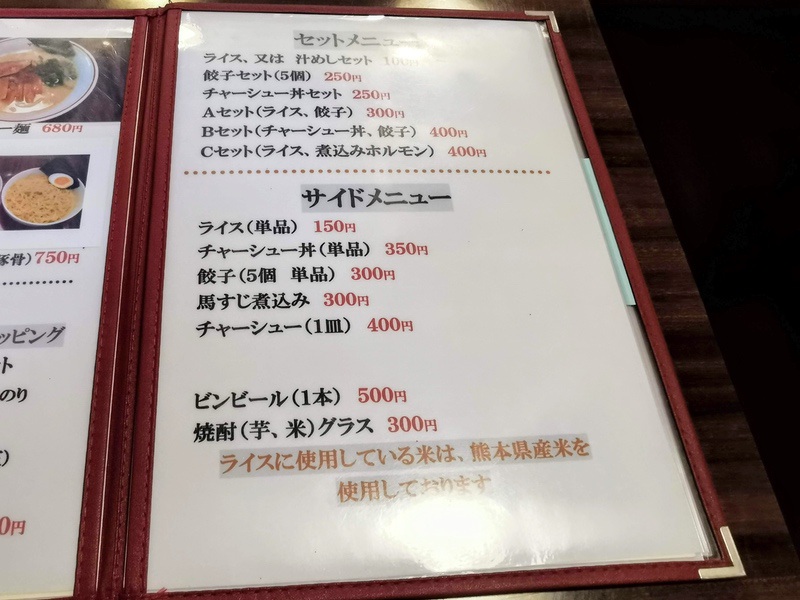 ー麺 680円
豚骨) 750円
ッピング
ト
のり
)
0円
セットメニュー
ライス、又は 汁めしセット 100円
餃子セット(5個) 250円
チャーシュー丼セット 250円
Aセット(ライス、餃子) 300円
Bセット(チャーシュー丼、餃子) 400円
Cセット(ライス、煮込みホルモン) 400円
サイドメニュー
ライス(単品) 150円
チャーシュー丼(単品) 350円
餃子(5個 単品) 300円
馬すじ煮込み 300円
チャーシュー(1皿) 400円
ビンビール(1本) 500円
焼酎(芋、米)グラス 300円
ライスに使用している米は、熊本県産米を
使用しております